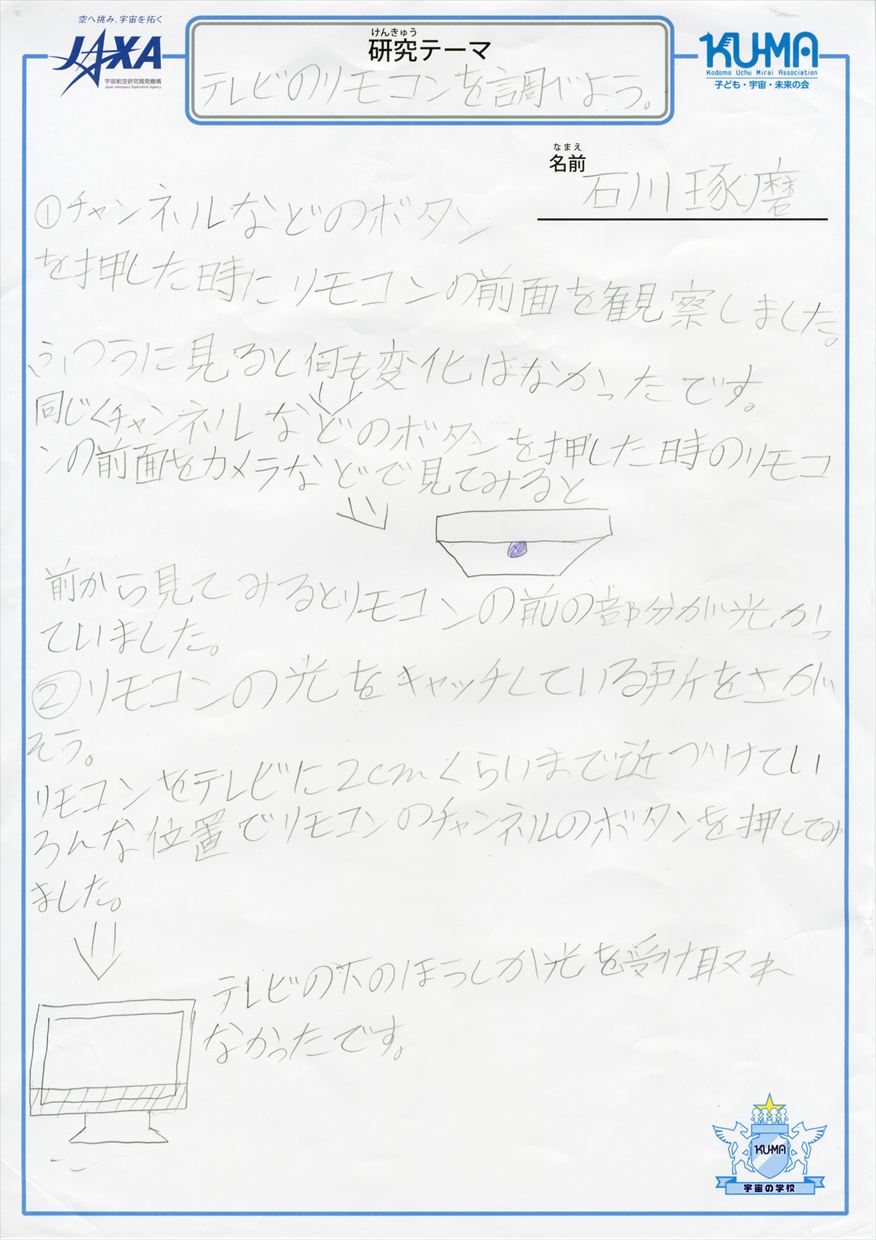 空へ挑み、宇宙を拓く
JAXA
宇宙航空研究開発機構
Japan Aerospace Exploration Agency
けんきゅう
研究テーマ
テレビのリモコンを調べよう。
KU-MA
Kodomo Uchu Mirai Association
子ども・宇宙・未来の会
なまえ
名前
石川琢磨
①チャンネルなどのボタン
を押した時にリモコンの前面を観察しました。
ふつうに見ると何も変化はなかったです。
同じくチャンネルなどのボタンを押した時のリモコ
ンの前面をカメラなどで見てみると
前から見てみるとリモコンの前の部分が光かっ
ていました。
②リモコンの光をキャッチしている所をさがそ
そう。
リモコンをテレビに2cmくらいまで近づけてい
ろんな位置でリモコンのチャンネルのボタンを押してみ
ました。
テレビの下のほうしか光を受け取れ
なかったです。
KU-MA
宇宙の学校